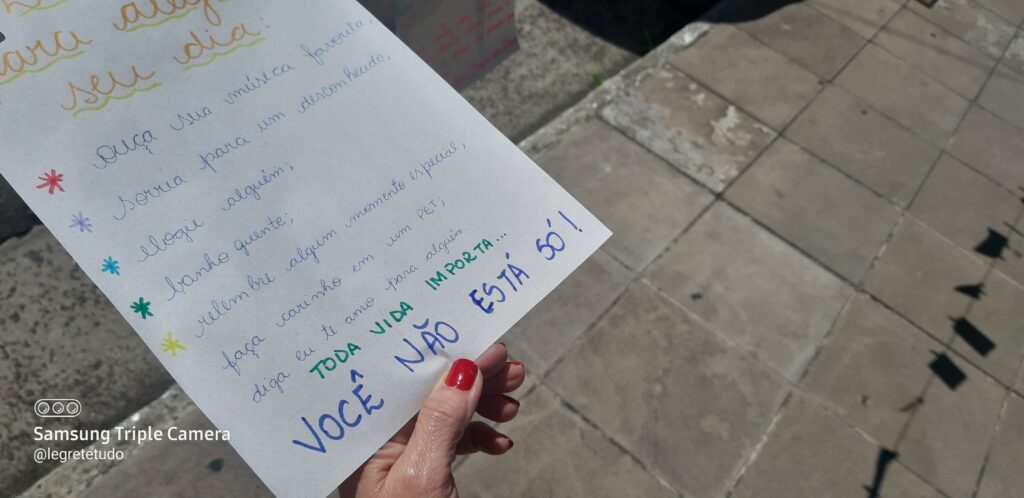 para
seu dia
ouça sua música favorita,
sorria para um desconhecido,
elogie alguém;
banho quente;
relembre algum momento especial,
faça carinho em um PET;
diga eu te amo para alguém
TODA VIDA IMPORTA...
VOCÊ NÃO ESTÁ SÓ!
Samsung Triple Camera
@legretetudo